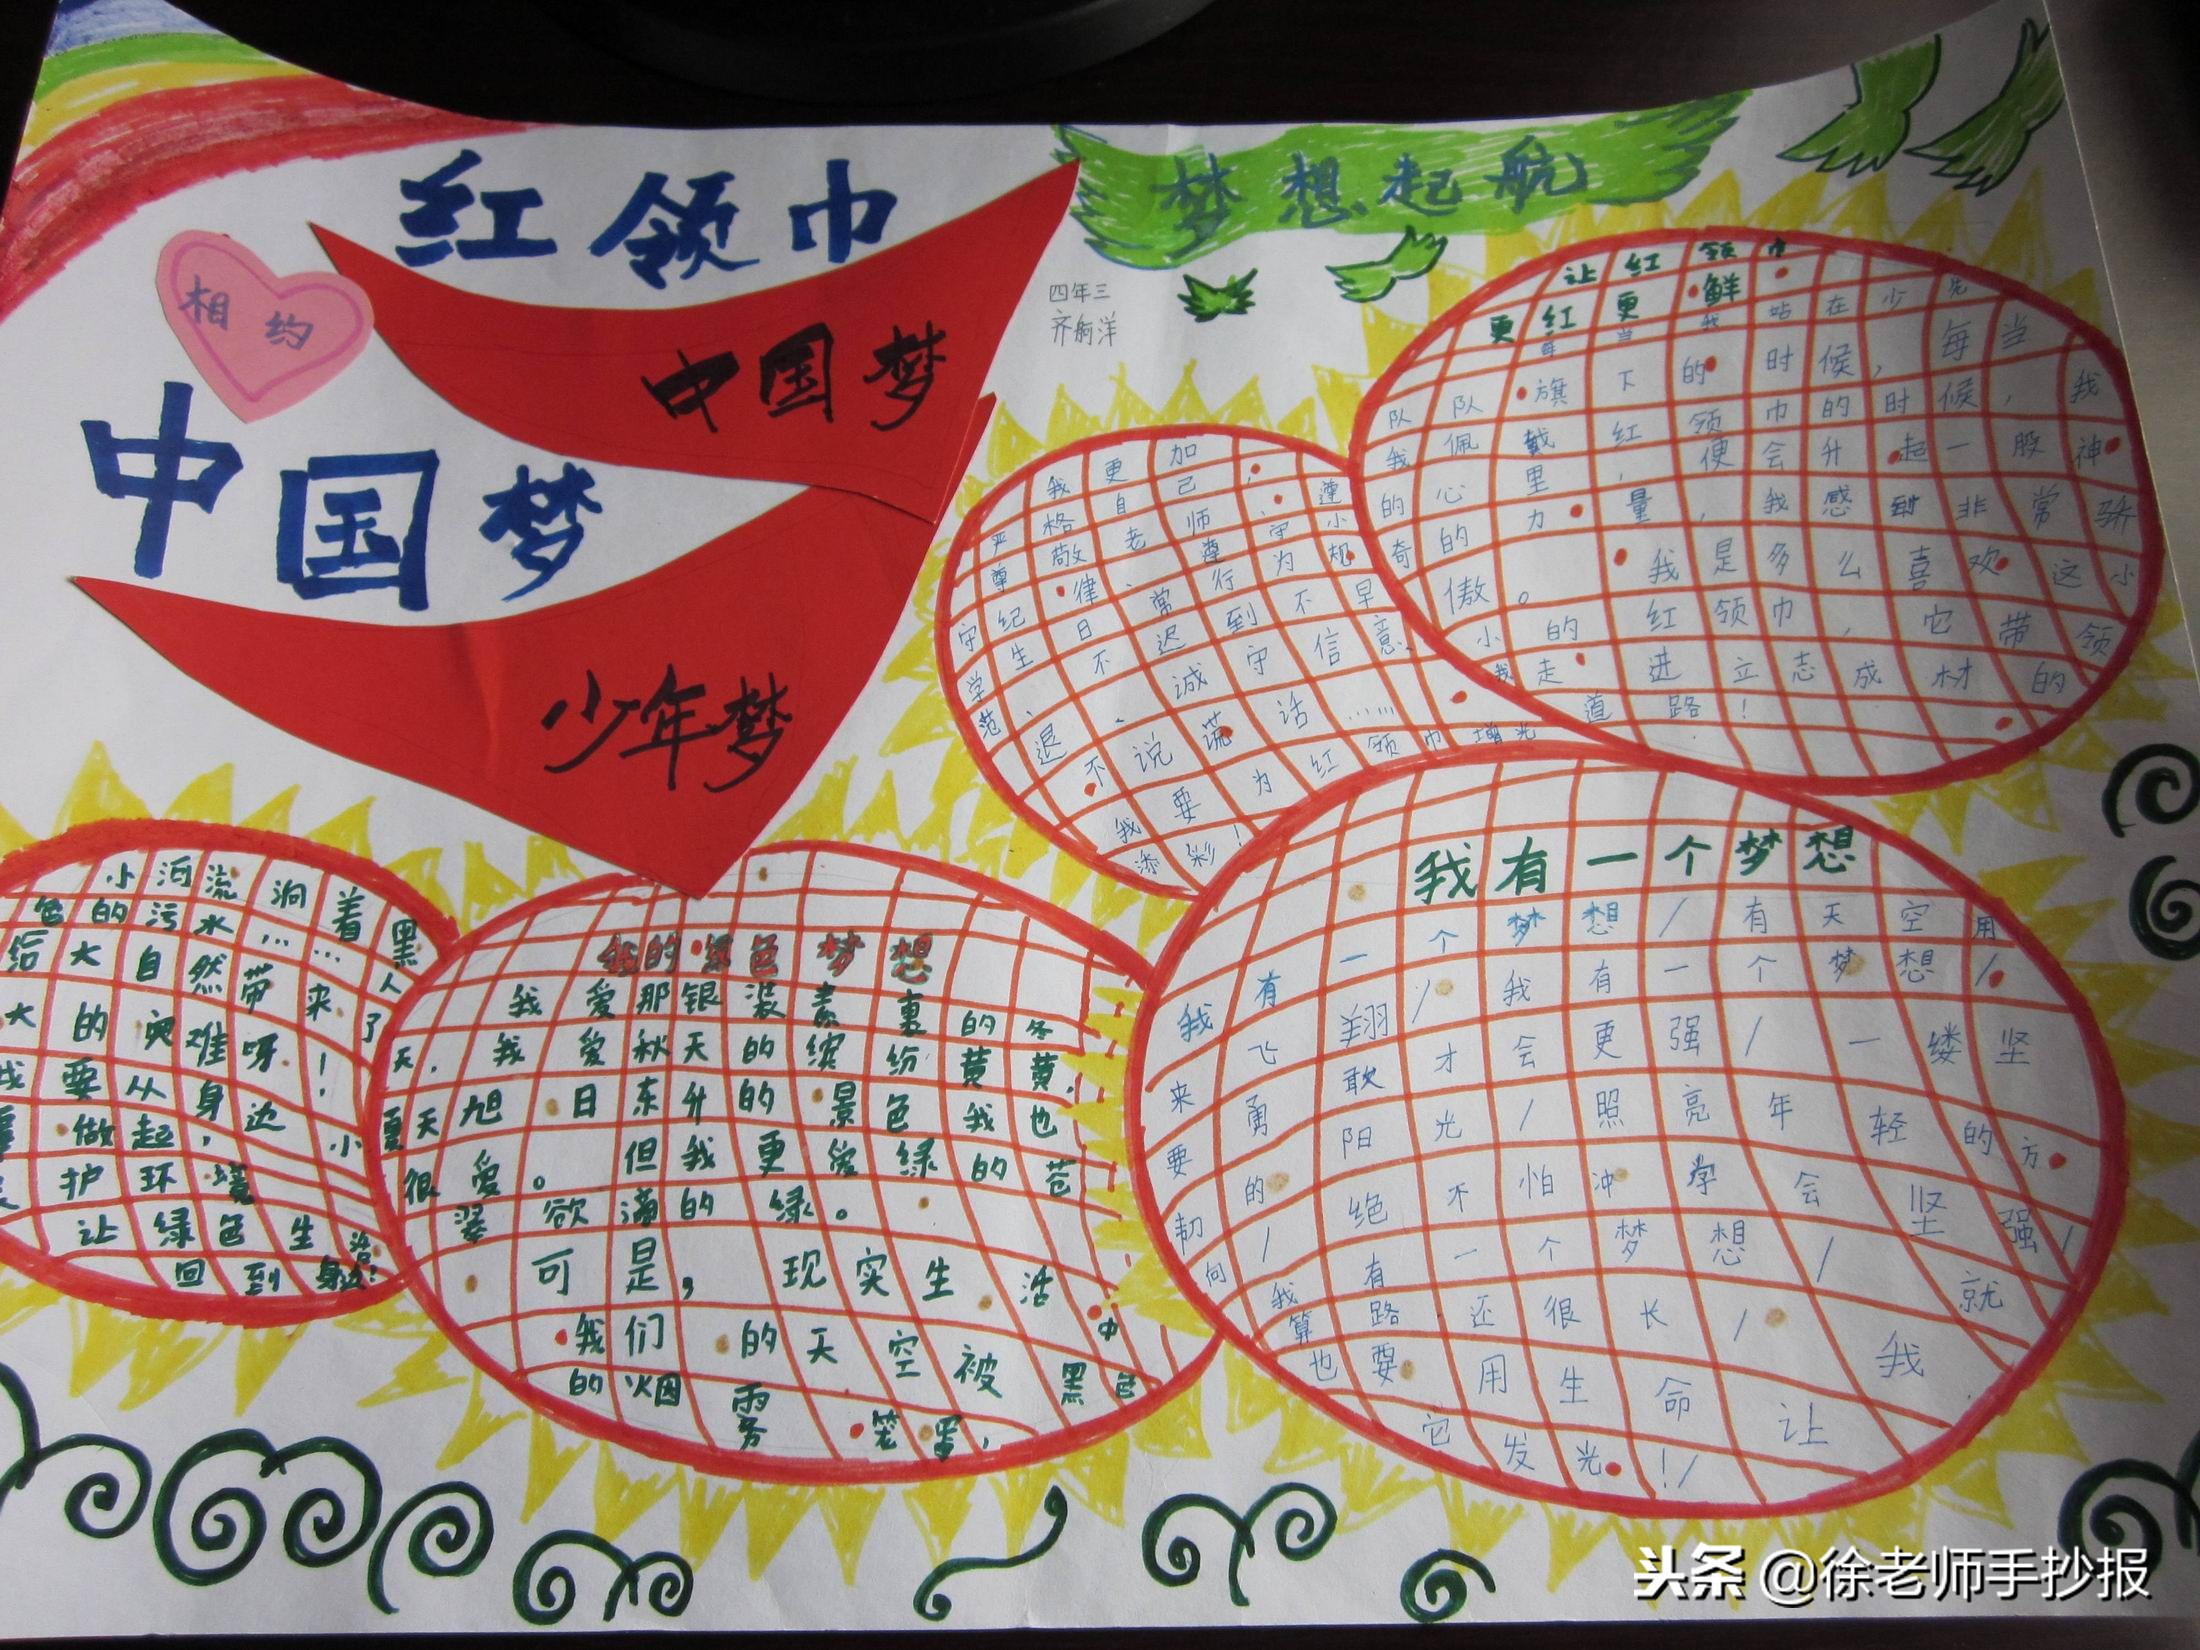 红领巾
相约
中国梦
中国梦
少年梦
梦想起航
四年三
让红领巾
更红更鲜
每当我站在少先
队队旗下的时候，每当
我佩戴红领巾的时候，我
的心里，便会升起一股神
奇的力量，我感到非常骄
傲。我是多么喜欢这小
小的红领巾，它带领
我走进立志成材的
道路！
我更加
严格自己，遵
尊敬老师、遵守小
守纪律、常行为规
学生日
范、不迟到不早
退、诚守信意
不说谎话……
我要为红领巾增光
添彩！
我有一个梦想
我有一个梦想/有天空用
来飞翔/我有一个梦想/
要勇敢才会更强/一缕坚
韧的阳光/照亮年轻的方
向/绝不怕冲学会坚强/
我有一个梦想/就
算路还很长/我
也要用生命让
它发光！/
我的绿色梦想
我爱那银装素裹的冬
天，我爱秋天的缤纷黄黄，
夏天旭日东升的景色我也
很爱。但我更爱绿的苍
翠欲滴的绿。
可是，现实生活中
我们的天空被黑色
的烟雾笼罩，
小河流淌着黑
色的污水……人
给大自然带来了
大的灾难呀！
我要从身边小
事做起，
护环境
让绿色生活
回到身边！
头条 @徐老师手抄报